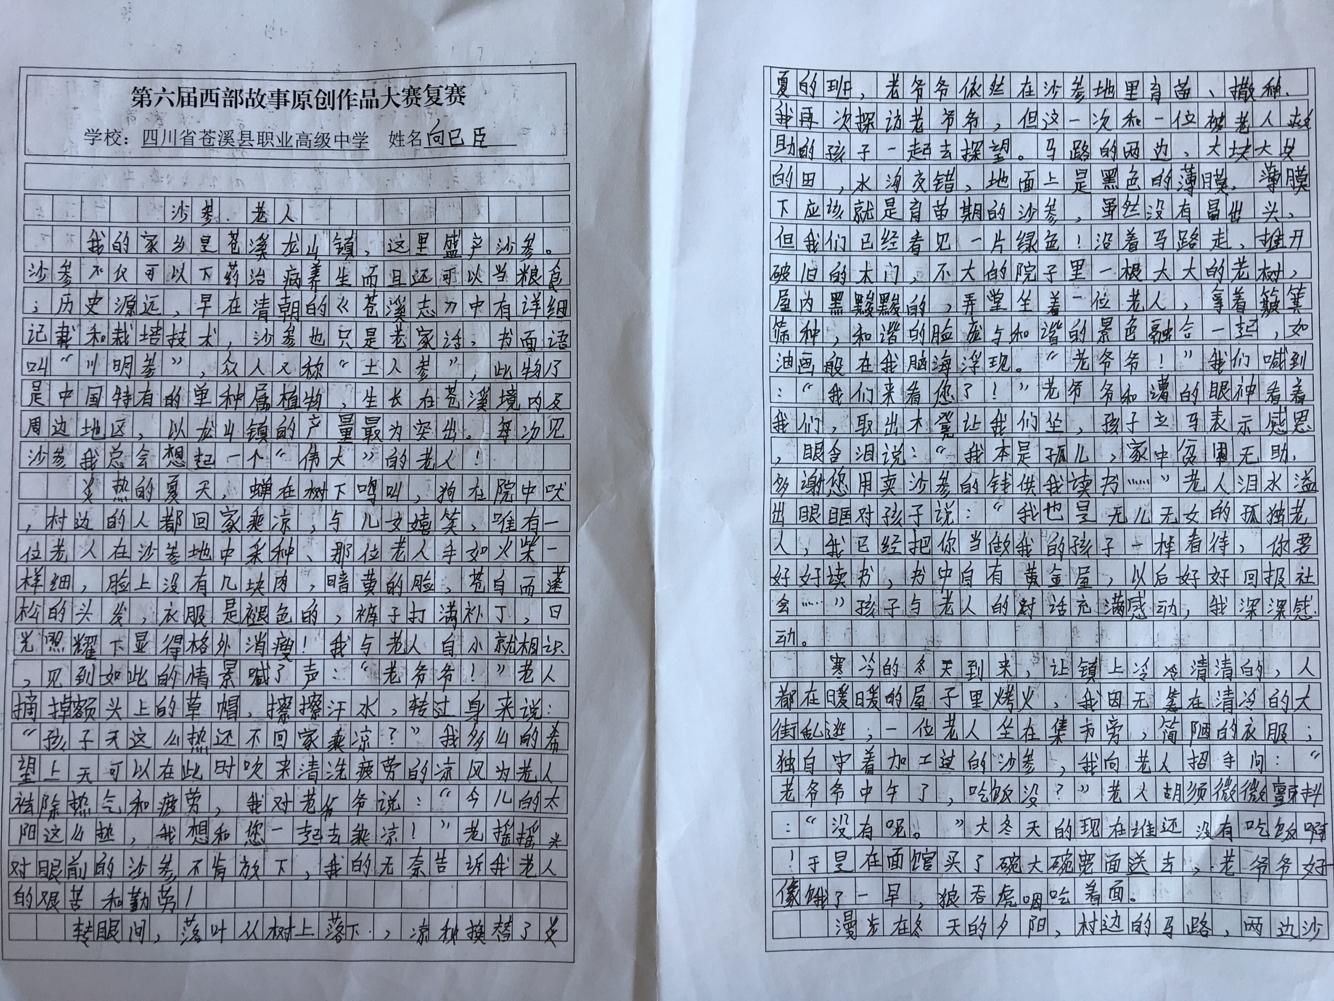 第六届西部故事原创作品大赛复赛
学校：四川省苍溪县职业高级中学 姓名向巳臣
沙参、老人
我的家乡是苍溪龙山镇，这里盛产沙参。
沙参不仅可以下药治病养生而且还可以当粮食
；历史源远，早在清朝的《苍溪志》中有详细
记载和栽培技术，沙参也只是老家话，书面语
叫“川明参”，众人又称“土人参”，此物乃
是中国特有的单种属植物，生长在苍溪境内及
周边地区，以龙山镇的产量最为突出。每次见
沙参我总会想起一个“伟大”的老人！
炎热的夏天，蝉在树下鸣叫，狗在院中吠
，村边的人都回家乘凉，与儿女嬉笑，唯有一
位老人在沙参地中采种、那位老人手如火柴一
样细，脸上没有几块肉，暗黄的脸，苍白而蓬
松的头发，衣服是褪色的，裤子打满补丁，日
光照耀下显得格外消瘦！我与老人自小就相识
，见到如此的情景喊了声：“老爷爷！”老人
摘掉额头上的草帽，擦擦汗水，转过身来说：
“孩子天这么热还不回家乘凉？”我多么的希
望上天可以在此时吹来清洗疲劳的凉风为老人
祛除热气和疲劳，我对老爷爷说：“今儿的太
阳这么热，我想和您一起去乘凉！”老摇摇头
对眼前的沙参不肯放下，我的无奈告诉我老人
的艰苦和勤劳！
转眼间，落叶从树上落下，凉秋换替了炎
夏的班，老爷爷依然在沙参地里育苗、撒种、
我再次探访老爷爷，但这一次和一位被老人救
助的孩子一起去探望。马路的两边、大块大块
的田，水沟交错，地面上是黑色的薄膜，薄膜
下应该就是育苗期的沙参，虽然没有冒出头、
但我们已经看见一片绿色！沿着马路走，推开
破旧的木门，不大的院子里一棵大大的老树，
屋内黑黢黢的，弄堂坐着一位老人，拿着簸箕
筛种，和谐的脸庞与和谐的景色融合一起，如
油画般在我脑海浮现。“老爷爷！”我们喊到
：“我们来看您了！”老爷爷和谱的眼神看着
我们，取出木凳让我们坐，孩子立马表示感恩
，眼含泪说：“我本是孤儿，家中穷困无助，
多谢您用卖沙参的钱供我读书……”老人泪水溢
出眼眶对孩子说：“我也是无儿无女的孤独老
人，我已经把你当做我的孩子一样看待，你要
好好读书，书中自有黄金屋，以后好好回报社
会……”孩子与老人的对话充满感动，我深深感
动。
寒冷的冬天到来，让镇上冷冷清清的，人
都在暖暖的屋子里烤火，我因无在清冷的大
街乱逛，一位老人坐在集市旁，简陋的衣服；
独自守着加工过的沙参，我向老人招手问：“
老爷爷中午了，吃饭没？”老人胡须微微颤抖
：“没有呢。”大冬天的现在谁还没有吃饭啊
！于是在面馆买了碗大碗宽面送去，老爷爷好
像饿了一早，狼吞虎咽吃着面。
漫步在冬天的夕阳，村边的马路，两边沙